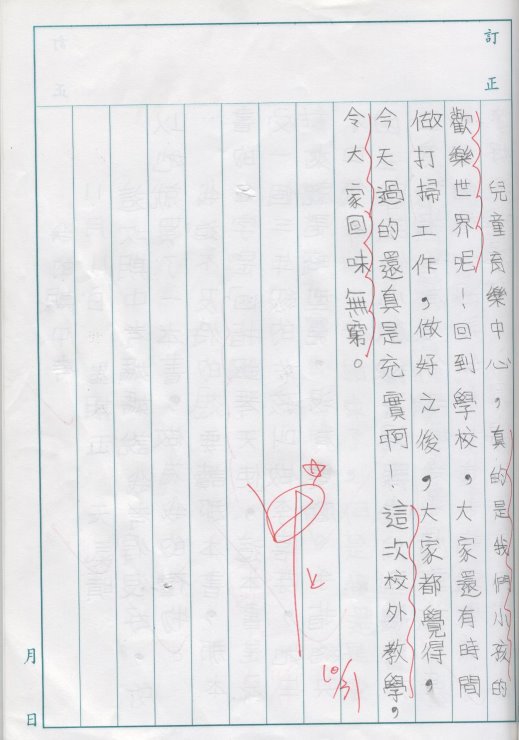 訂正
兒童育樂中心，真的是我們小孩的
歡樂世界呢！回到學校，大家還有時間
做打掃工作，做好之後，大家都覺得，
今天過的還真是充實啊！這次校外教學，
令大家回味無窮。
甲上
10/31
月 日